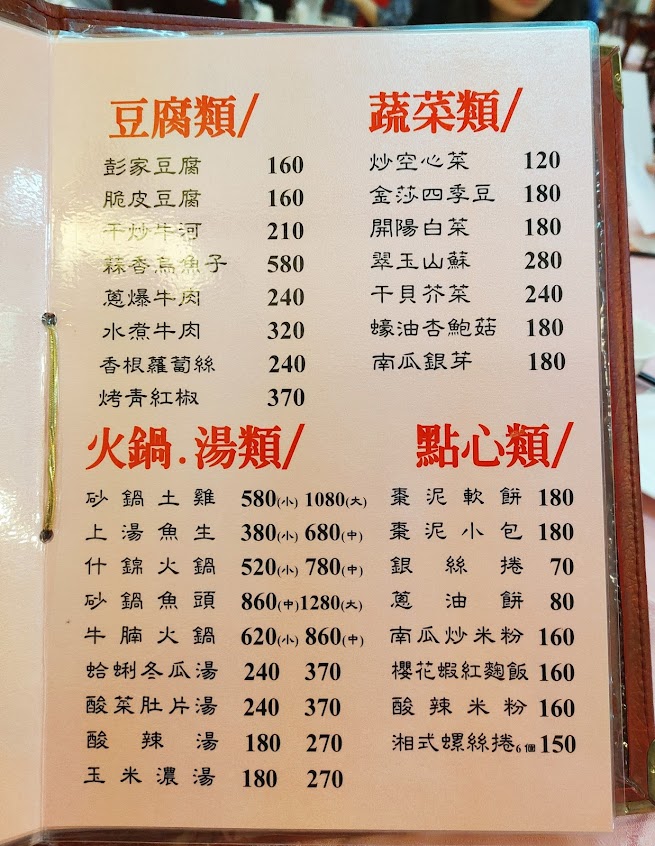 豆腐類/
彭家豆腐 160
脆皮豆腐 160
干炒牛河 210
蒜香烏魚子 580
蔥爆牛肉 240
水煮牛肉 320
香根蘿蔔絲 240
烤青紅椒 370
蔬菜類/
炒空心菜 120
金莎四季豆 180
開陽白菜 180
翠玉山蘇 280
干貝芥菜 240
蠔油杏鮑菇 180
南瓜銀芽 180
火鍋.湯類/
砂鍋土雞 580(小) 1080(大)
上湯魚生 380(小) 680(中)
什錦火鍋 520(小) 780(中)
砂鍋魚頭 860(中) 1280(大)
牛腩火鍋 620(小) 860(中)
蛤蜊冬瓜湯 240 370
酸菜肚片湯 240 370
酸辣湯 180 270
玉米濃湯 180 270
點心類/
棗泥軟餅 180
棗泥小包 180
銀絲捲 70
蔥油餅 80
南瓜炒米粉 160
櫻花蝦紅麴飯 160
酸辣米粉 160
湘式螺絲捲6個 150